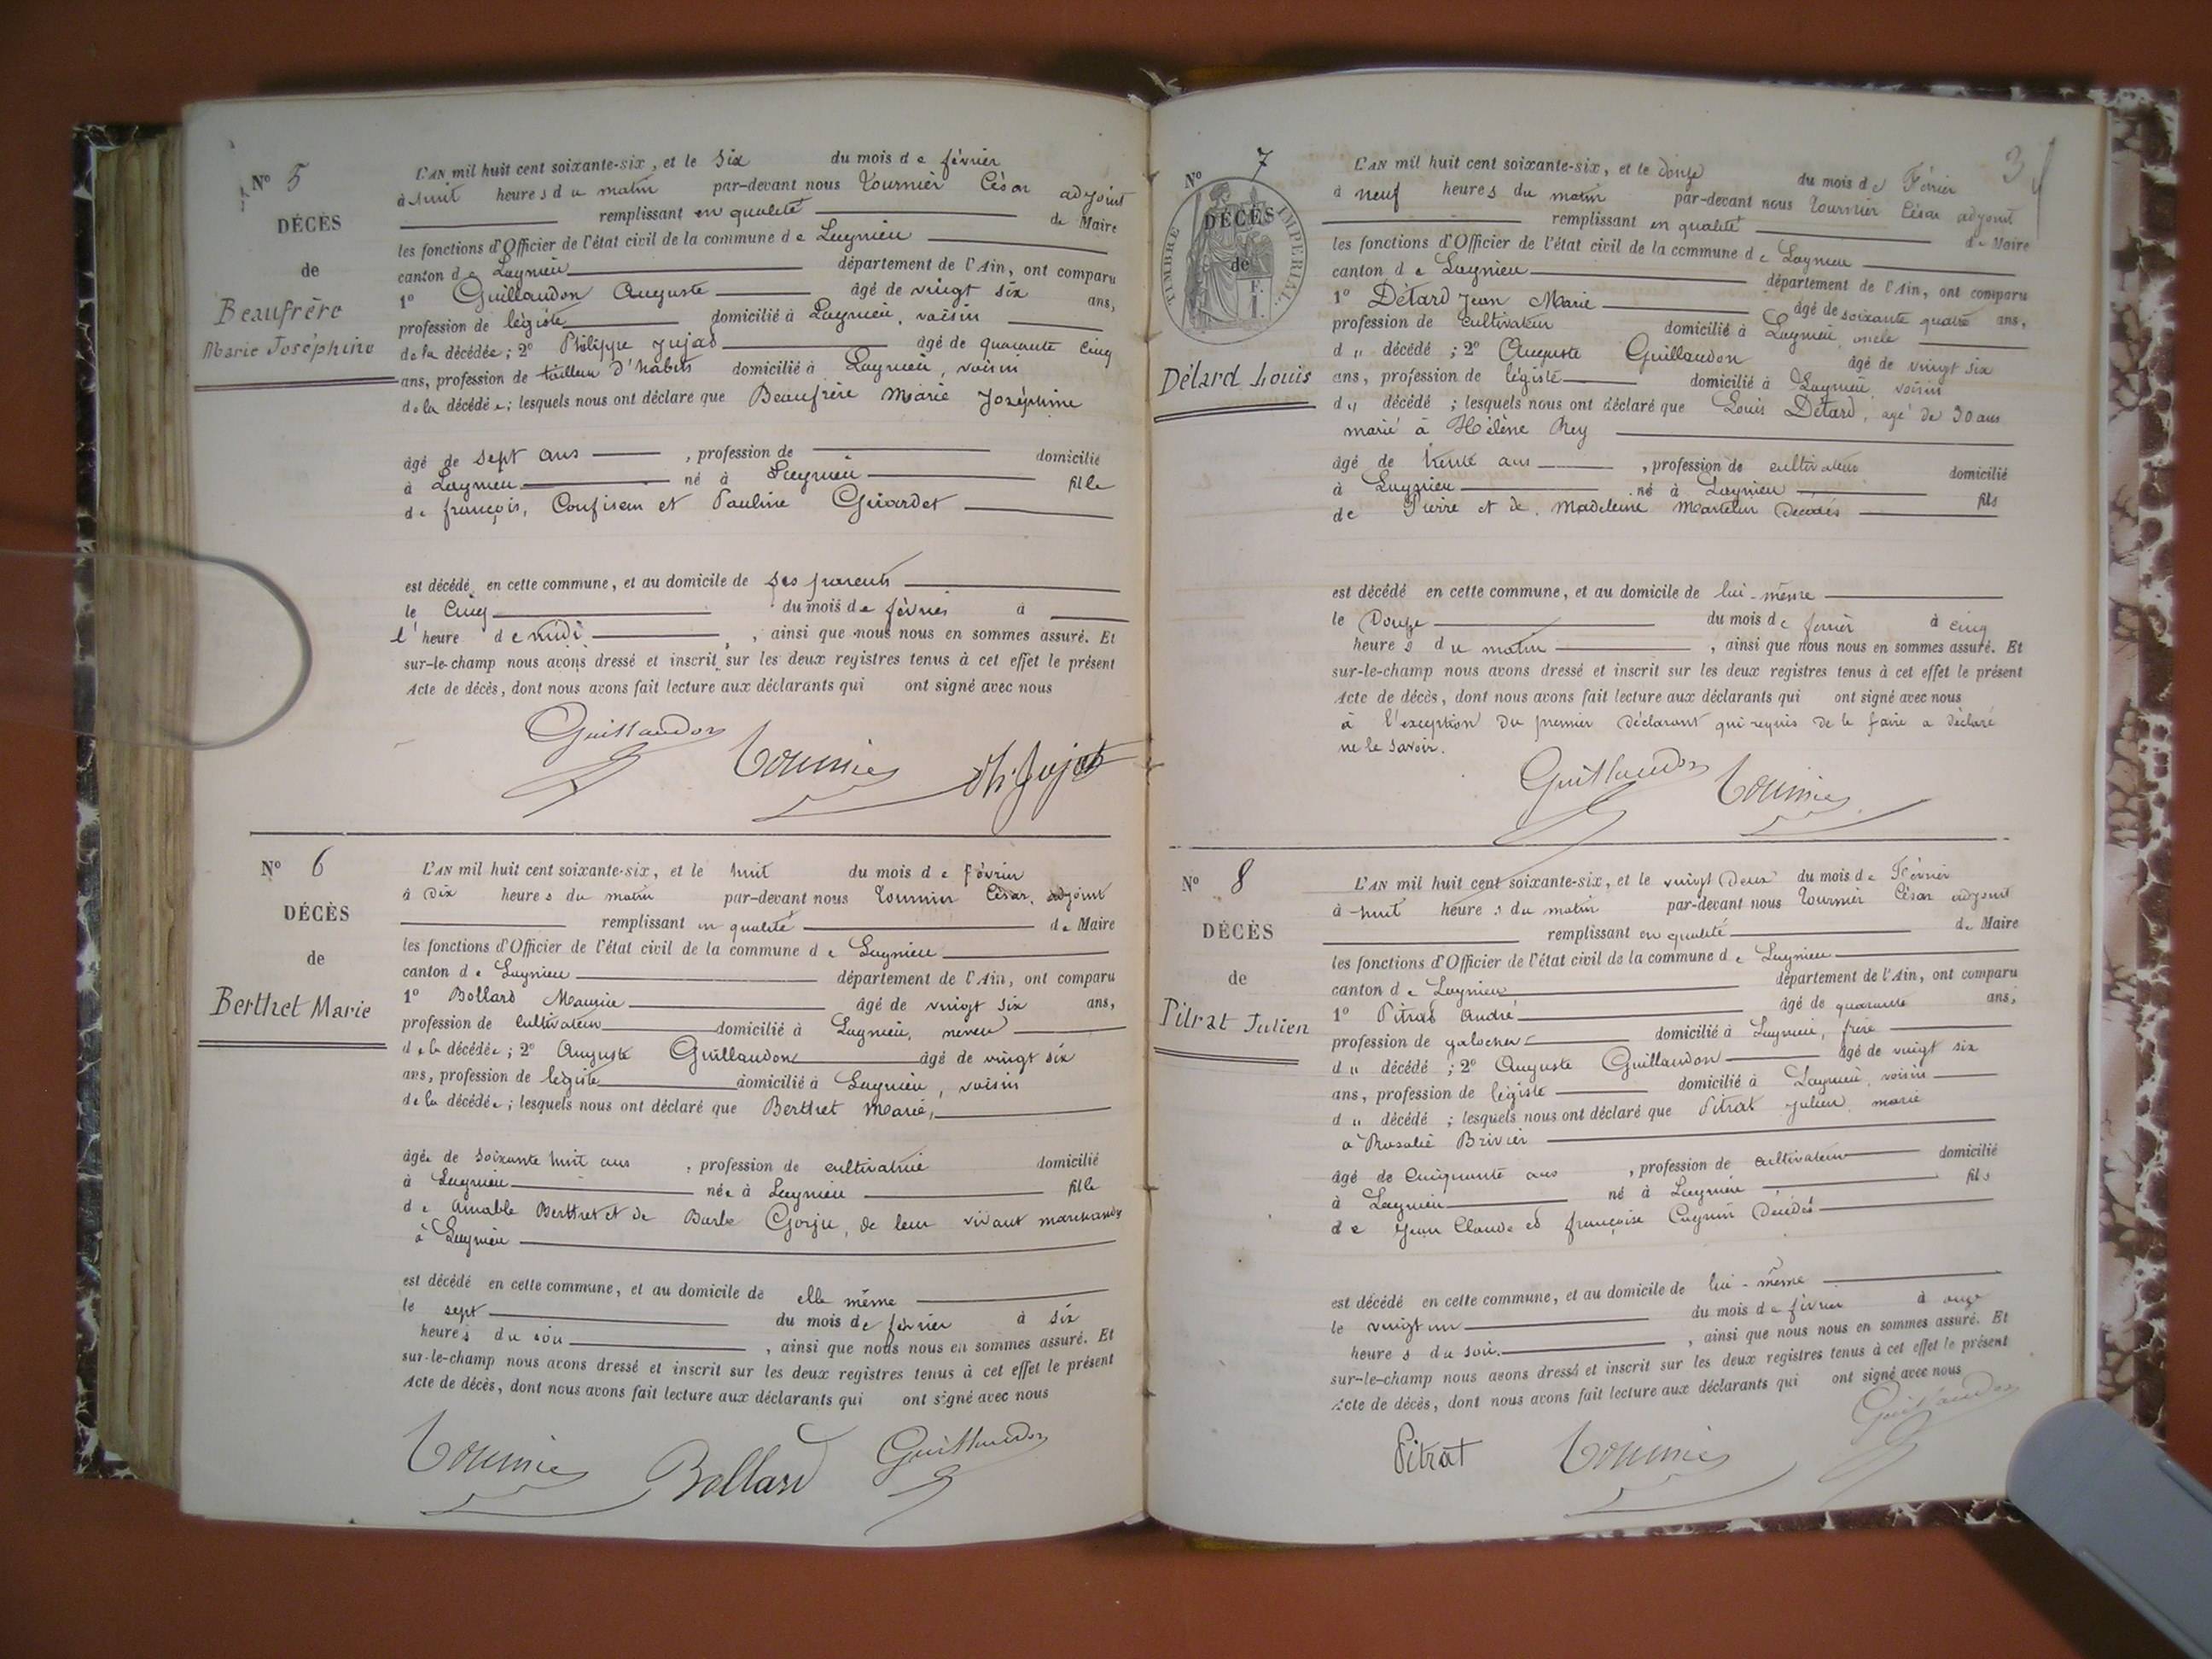 N° 5
DÉCÈS
de
Beaufrère
Marie Joséphine
L'AN mil huit cent soixante-six, et le six du mois de février
à huit heures du matin par-devant nous Tournier César adjoint
remplissant en qualité de Maire
les fonctions d'Officier de l'état civil de la commune de Lagnieu
canton de Lagnieu département de l'Ain, ont comparu
1° Guillaudon Auguste âgé de vingt six ans,
profession de légiste domicilié à Lagnieu, voisin
de la décédée; 2° Philippe Jujat âgé de quarante cinq
ans, profession de tailleur d'habits domicilié à Lagnieu, voisin
de la décédée; lesquels nous ont déclaré que Beaufrère Marie Joséphine
âgé de sept ans , profession de domicilié
à Lagnieu né à Lagnieu fille
de françois, Confiseur et Pauline Girardet
est décédé en cette commune, et au domicile de ses parents
le Cinq du mois de février à
l'heure de midi , ainsi que nous nous en sommes assuré. Et
sur-le-champ nous avons dressé et inscrit sur les deux registres tenus à cet effet le présent
Acte de décès, dont nous avons fait lecture aux déclarants qui ont signé avec nous
Guillaudon Tournier Ph. Jujat
N° 6
DÉCÈS
de
Berthet Marie
L'AN mil huit cent soixante-six, et le huit du mois de Février
à Dix heures du matin par-devant nous Tournier César, adjoint
remplissant en qualité de Maire
les fonctions d'Officier de l'état civil de la commune de Lagnieu
canton de Lagnieu département de l'Ain, ont comparu
1° Bollard Maurice âgé de vingt six ans,
profession de Cultivateur domicilié à Lagnieu, neveu
de la décédée; 2° Auguste Guillaudon âgé de vingt six
ans, profession de légiste domicilié à Lagnieu, voisin
de la décédée; lesquels nous ont déclaré que Berthet Marie,
âgée de soixante huit ans , profession de cultivatrice domicilié
à Lagnieu née à Lagnieu fille
de Aimable Berthet et de Barbe Gorju, de leur vivant marchands
à Lagnieu
est décédé en cette commune, et au domicile de elle même
le sept du mois de février à six
heures du soir , ainsi que nous nous en sommes assuré. Et
sur-le-champ nous avons dressé et inscrit sur les deux registres tenus à cet effet le présent
Acte de décès, dont nous avons fait lecture aux déclarants qui ont signé avec nous
Tournier Bollard Guillaudon
3
N° 7
DÉCÈS
de
TIMBRE IMPÉRIAL
Détard Louis
L'AN mil huit cent soixante-six, et le douze du mois de Février
à neuf heures du matin par-devant nous Tournier César adjoint
remplissant en qualité de Maire
les fonctions d'Officier de l'état civil de la commune de Lagnieu
canton de Lagnieu département de l'Ain, ont comparu
1° Détard Jean Marie âgé de soixante quatre ans,
profession de Cultivateur domicilié à Lagnieu, oncle
du décédé ; 2° Auguste Guillaudon âgé de vingt six
ans, profession de légiste domicilié à Lagnieu, voisin
du décédé ; lesquels nous ont déclaré que Louis Détard, agé de 30 ans
marié à Hélène Rey
âgé de trente ans , profession de cultivateur domicilié
à Lagnieu né à Lagnieu fils
de Pierre et de Madeleine Martelin Décédés
est décédé en cette commune, et au domicile de lui-même
le Douze du mois de fevrier à cinq
heures du matin , ainsi que nous nous en sommes assuré. Et
sur-le-champ nous avons dressé et inscrit sur les deux registres tenus à cet effet le présent
Acte de décès, dont nous avons fait lecture aux déclarants qui ont signé avec nous
à l'exception du premier déclarant qui requis de le faire a déclaré
ne le savoir.
Guillaudon Tournier
N° 8
DÉCÈS
de
Pitrat Julien
L'AN mil huit cent soixante-six, et le vingt Deux du mois de Février
à huit heures du matin par-devant nous Tournier César adjoint
remplissant en qualité de Maire
les fonctions d'Officier de l'état civil de la commune de Lagnieu
canton de Lagnieu département de l'Ain, ont comparu
1° Pitrat André, âgé de quarante ans,
profession de galocher domicilié à Lagnieu, frère
du décédé ; 2° Auguste Guillaudon âgé de vingt six
ans, profession de légiste domicilié à Lagnieu, voisin
du décédé ; lesquels nous ont déclaré que Pitrat Julien, marié
à Rosalie Brivier
âgé de Cinquante ans , profession de cultivateur domicilié
à Lagnieu né à Lagnieu fils
de Jean Claude et françoise Cagnin Décédés
est décédé en cette commune, et au domicile de lui-même
le vingt un du mois de février à onze
heures du soir. , ainsi que nous nous en sommes assuré. Et
sur-le-champ nous avons dressé et inscrit sur les deux registres tenus à cet effet le présent
Acte de décès, dont nous avons fait lecture aux déclarants qui ont signé avec nous
Pitrat Tournier Guillaudon